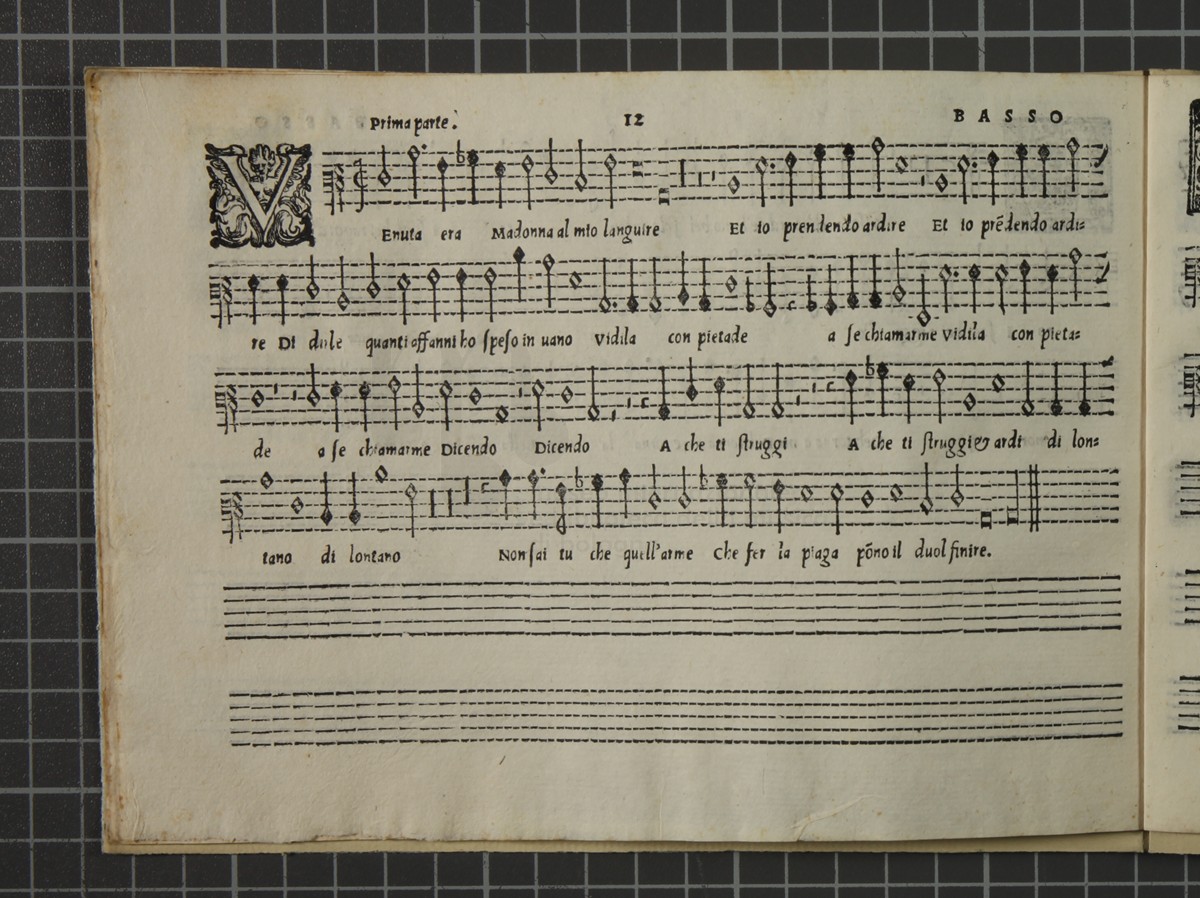 Prima parte. 12 BASSO
VEnuta era Madonna al mio languire Et io prendendo ardire Et io prẽdendo ardi=
re Di dirle quanti affanni ho speso in uano Vidila con pietade a se chiamarme Vidila con pieta=
de a se chiamarme Dicendo Dicendo A che ti struggi A che ti struggi & ardi di lon=
tano di lontano Non sai tu che quell'arme Che fer la piaga põno il duol finire.